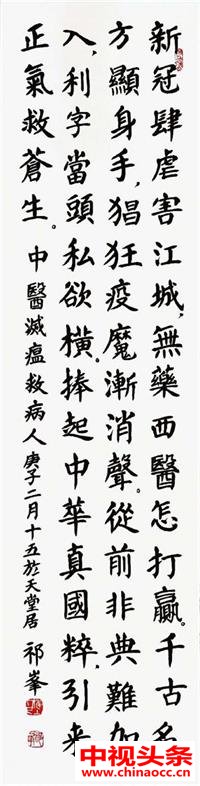 新冠肆虐害江城，無藥西醫怎打贏。千古名
方顯身手，猖狂疫魔漸消聲。從前非典難加
入，利字當頭私欲橫。捧起中華真國粹，引来
正氣救蒼生。中醫滅瘟救病人 庚子二月十五於天堂居 祁峯
中视头条
www.chinaocc.cn